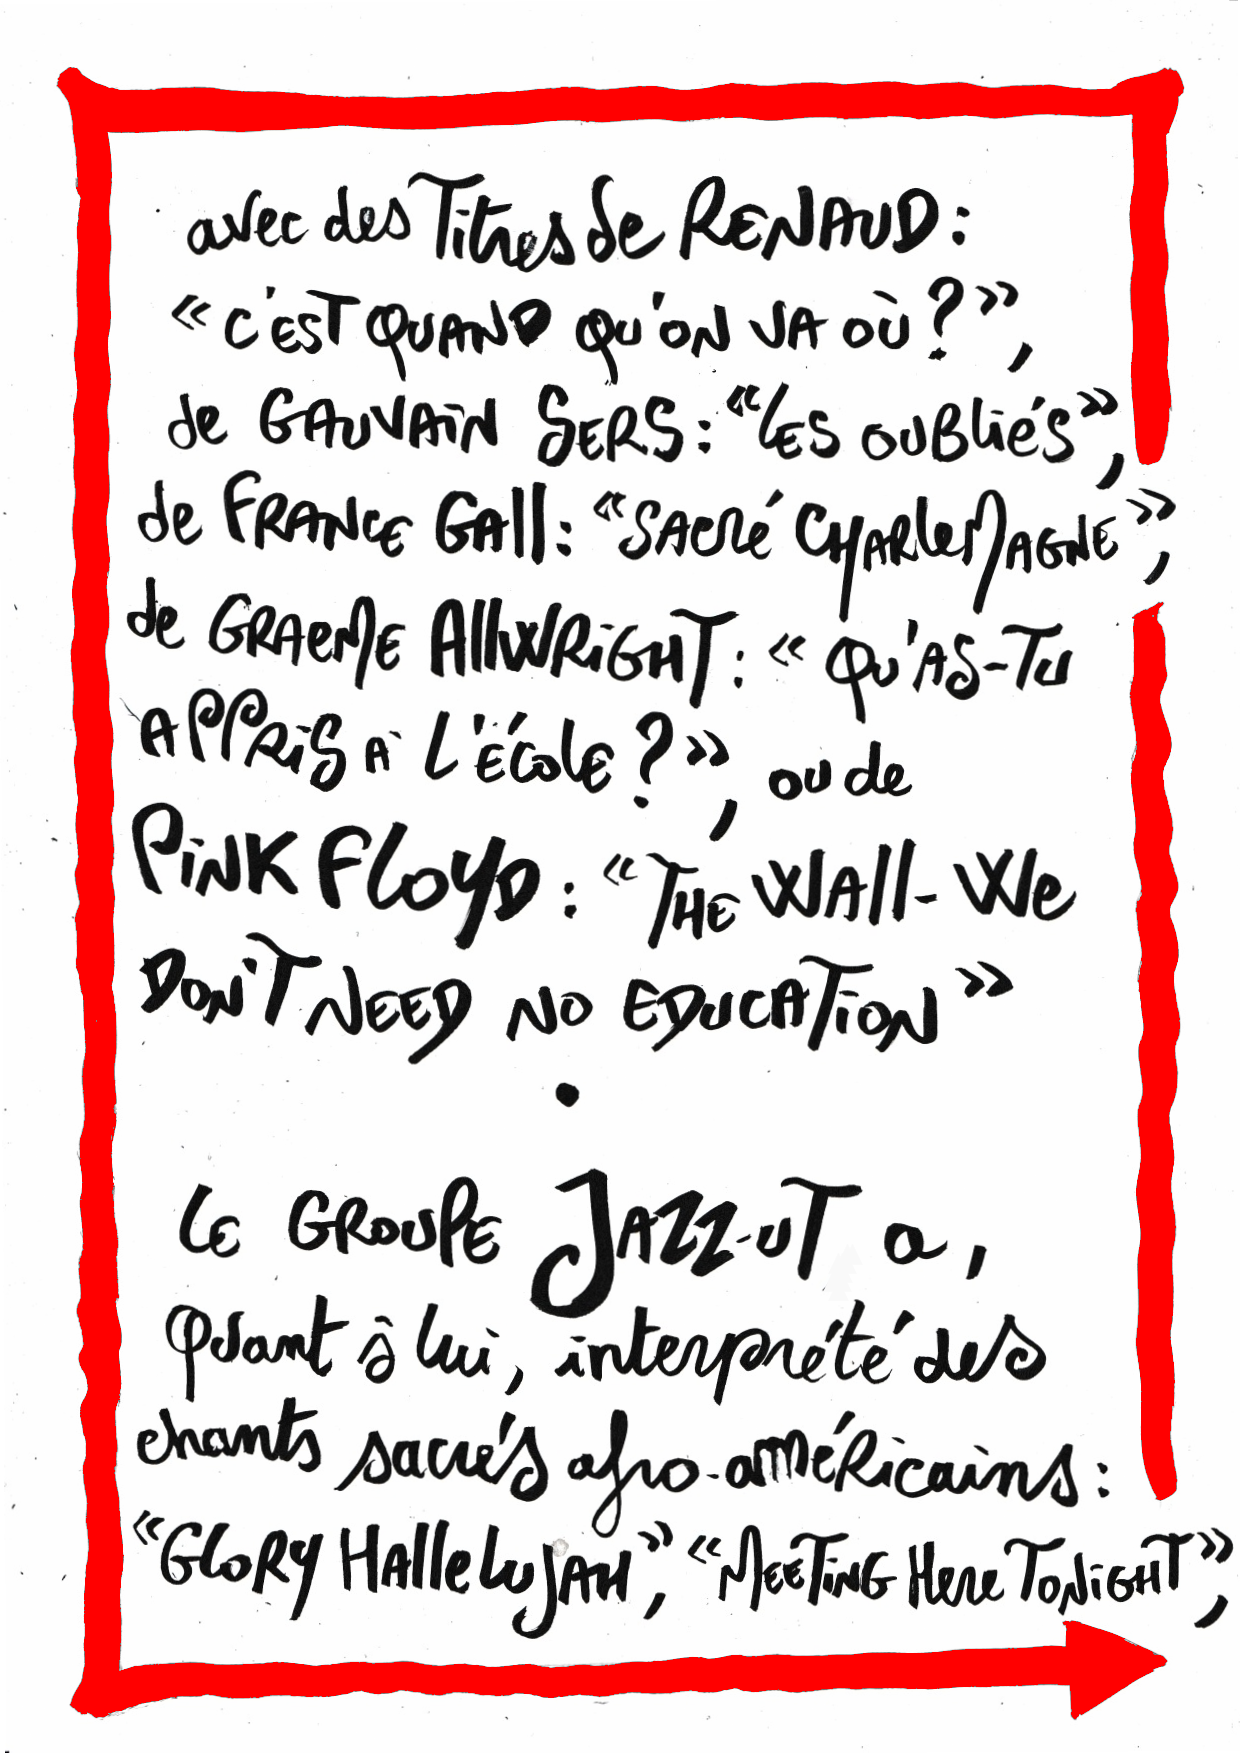 avec des Titres de RENAUD :
« C'EST QUAND QU'ON VA OÙ ? »,
de GAUVAIN SERS : "LES OUBLIÉS",
de FRANCE GALL : "SACRÉ CHARLEMAGNE",
de GRAEME ALLWRIGHT : « QU'AS-TU
APPRIS À L'ÉCOLE ? », ou de
PINK FLOYD : "THE WALL - WE
DON'T NEED NO EDUCATION »
.
LE GROUPE JAZZ-UT a,
quant à lui, interprété des
chants sacrés afro-américains :
"GLORY HALLELUJAH", "MEETING HERE TONIGHT",